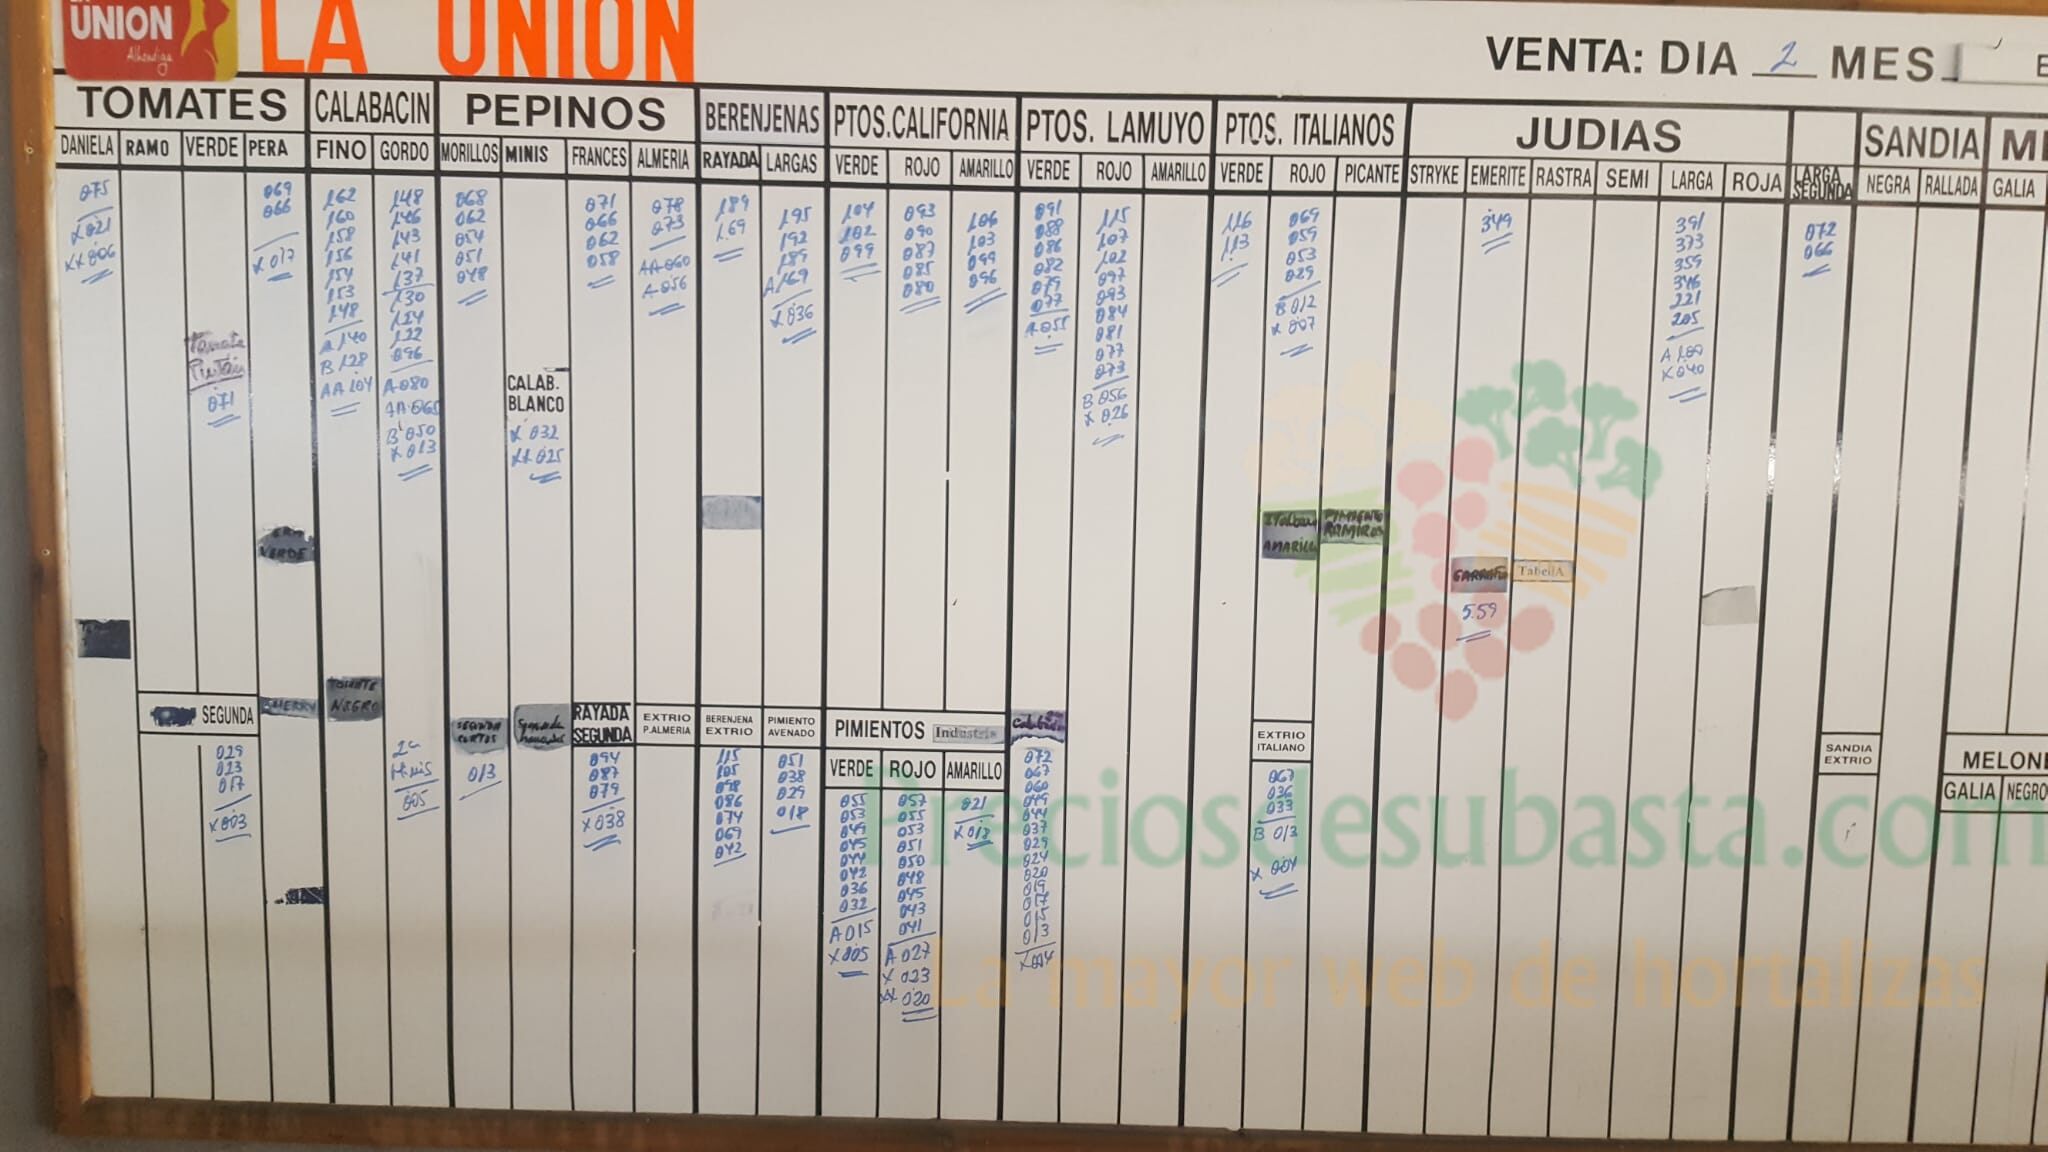 LA UNION
UNION
Alhóndiga
VENTA: DIA 2 MES
TOMATES CALABACIN PEPINOS BERENJENAS PTOS.CALIFORNIA PTOS. LAMUYO PTOS. ITALIANOS JUDIAS SANDIA
DANIELA RAMO VERDE PERA FINO GORDO MORILLOS MINIS FRANCES ALMERIA RAYADA LARGAS VERDE ROJO AMARILLO VERDE ROJO AMARILLO VERDE ROJO PICANTE STRYKE EMERITE RASTRA SEMI LARGA ROJA LARGA SEGUNDA NEGRA RALLADA GALIA
075
X021
XX006
Tomate
Pintón
071
069
066
X 017
162
160
158
156
154
153
148
A 140
B 128
AA 104
148
146
143
141
137
130
124
122
096
A 080
AA 065
B 050
X 013
068
062
054
051
048
CALAB.
BLANCO
X 032
XX 025
071
066
062
058
078
073
AA 060
A 056
189
1.69
195
192
189
A 169
X 036
104
102
099
093
090
087
085
080
106
103
099
096
091
088
086
082
079
077
A 055
115
107
102
097
093
084
081
077
073
B 056
X 026
116
113
069
059
053
029
B 012
X 007
349
391
373
359
346
221
205
A 100
X 040
072
066
VERDE
AMARILLO
PIMIENTO
RAMIRO
TabellA
5.59
SEGUNDA
029
023
017
X 003
CHERRY
TOMATE
NEGRO
2ª
Minis
005
SEGUNDA
CORTOS
013
RAYADA
SEGUNDA
094
087
079
X 038
EXTRIO
P.ALMERIA
BERENJENA
EXTRIO
115
105
098
086
074
069
042
PIMIENTO
AVENADO
051
038
029
018
PIMIENTOS Industria
VERDE ROJO AMARILLO
055
053
049
045
044
042
036
032
A 015
X 005
057
055
053
051
050
048
045
043
041
A 027
X 023
XX 020
021
X 018
072
067
060
049
044
037
029
024
020
019
017
015
013
X 004
EXTRIO
ITALIANO
067
036
033
B 013
X 004
SANDIA
EXTRIO
MELONE
GALIA NEGRO
Preciosdesubasta.com
La mayor web de hortalizas